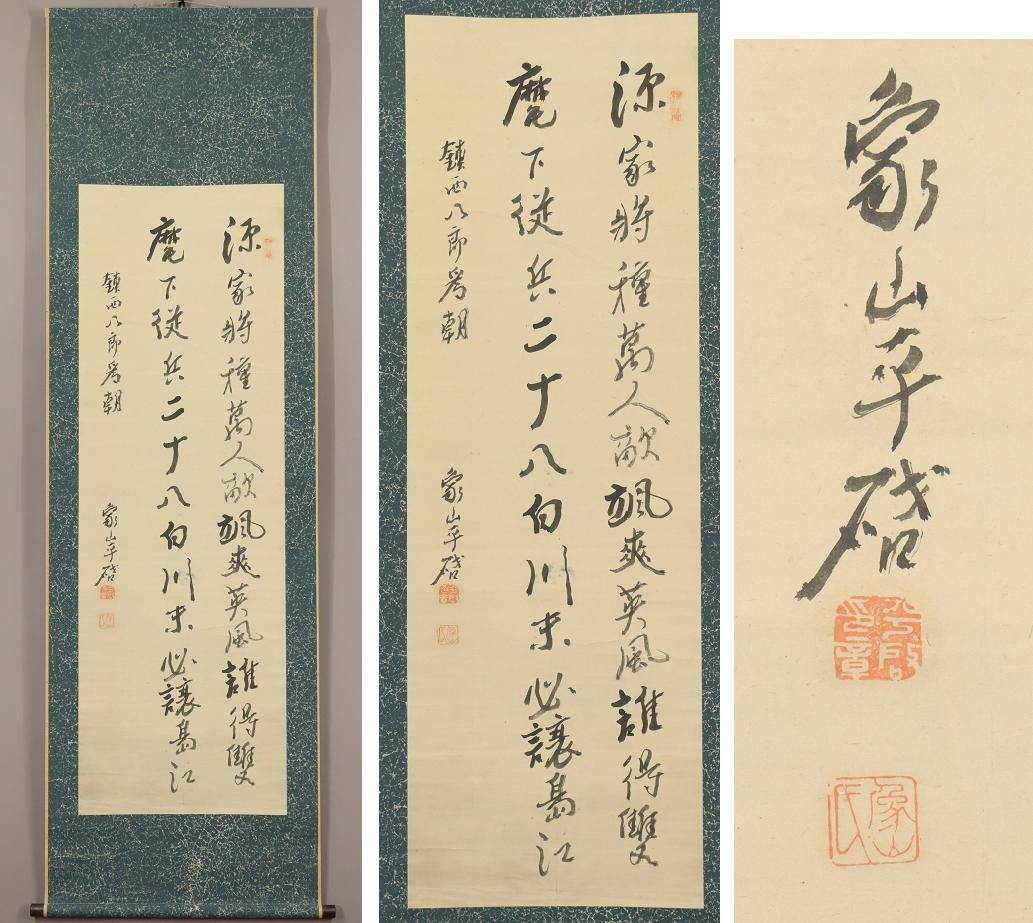 源家將種萬人敵颯爽英風誰得雙
麾下從兵二十八白川未必讓烏江
鎮西八郎為朝
象山平啓
源家將種萬人敵颯爽英風誰得雙
麾下從兵二十八白川未必讓烏江
鎮西八郎為朝
象山平啓
象山平啓
平啓印章